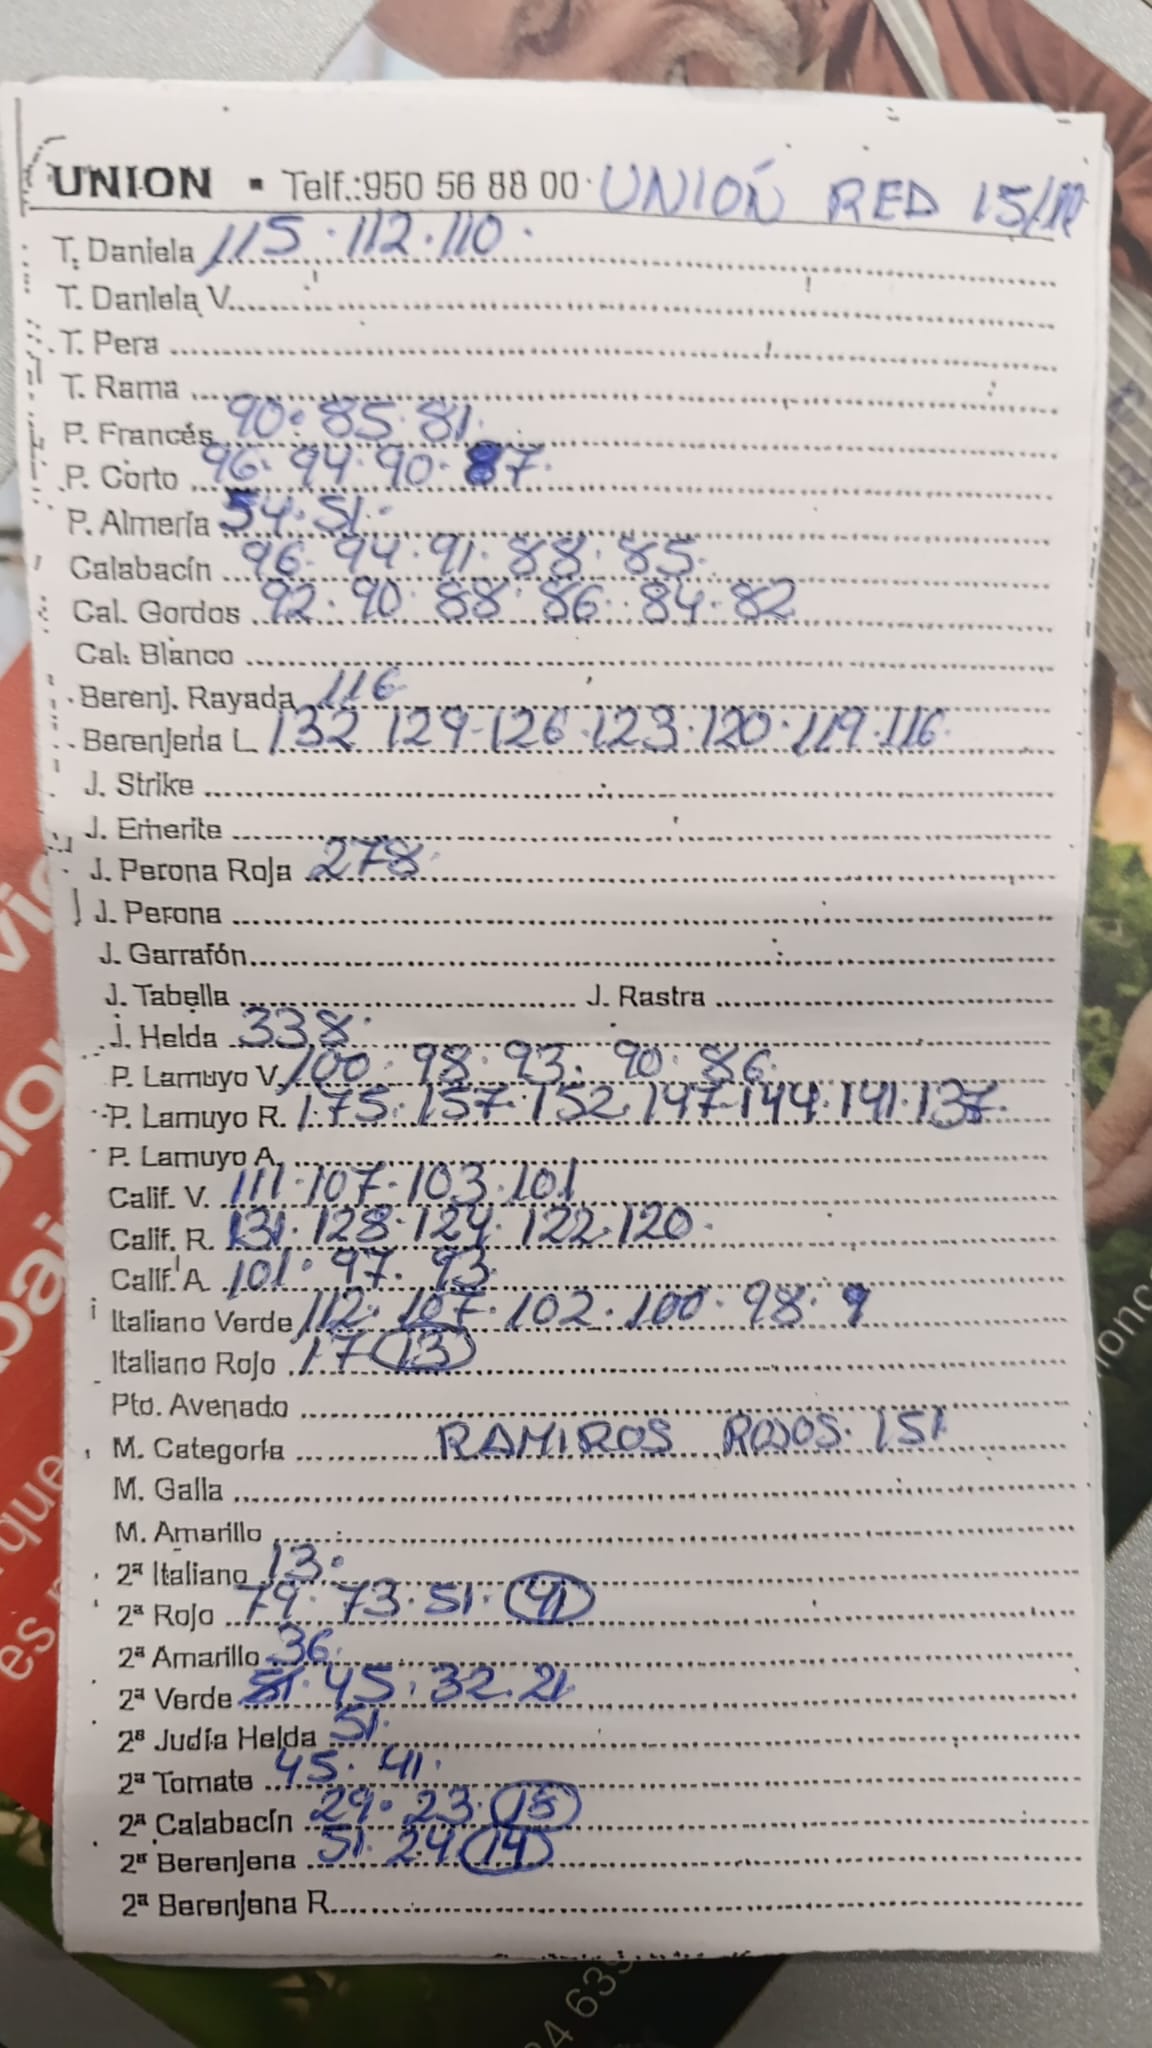 UNION ▪ Telf.:950 56 88 00 UNIÓN RED 15/
T. Daniela 115 . 112 . 110 .
T. Daniela V.
T. Pera
T. Rama
P. Francés 90 . 85 . 81 .
P. Corto 96 . 94 . 90 . 87 .
P. Almería 54 . 51 .
Calabacín 96 . 94 . 91 . 88 . 85 .
Cal. Gordos 92 . 90 . 88 . 86 . 84 . 82
Cal. Blanco
Berenj. Rayada 116 .
Berenjena L 132 129 - 126 . 123 . 120 . 119 . 116 .
J. Strike
J. Emerite
J. Perona Roja 278 .
J. Perona
J. Garrafón
J. Tabella J. Rastra
J. Helda 338 .
P. Lamuyo V. 100 . 98 . 93 . 90 . 86 .
P. Lamuyo R. 175 . 157 . 152 . 147 - 144 . 141 . 137 .
P. Lamuyo A.
Calif. V. 111 . 107 . 103 . 101
Calif. R. 131 . 128 . 124 . 122 . 120 .
Calif. A. 101 . 97 . 93 .
Italiano Verde 112 . 107 . 102 . 100 . 98 . 9
Italiano Rojo 17 13
Pto. Avenado
M. Categoría RAMIROS ROJOS . 151
M. Galla
M. Amarillo
2ª Italiano 13 .
2ª Rojo 79 . 73 . 51 . 41
2ª Amarillo 36 .
2ª Verde 51 . 45 . 32 . 21
2ª Judía Helda 51 .
2ª Tomate 45 . 41 .
2ª Calabacín 29 . 23 . 15
2ª Berenjena 51 . 24 14
2ª Berenjena R.